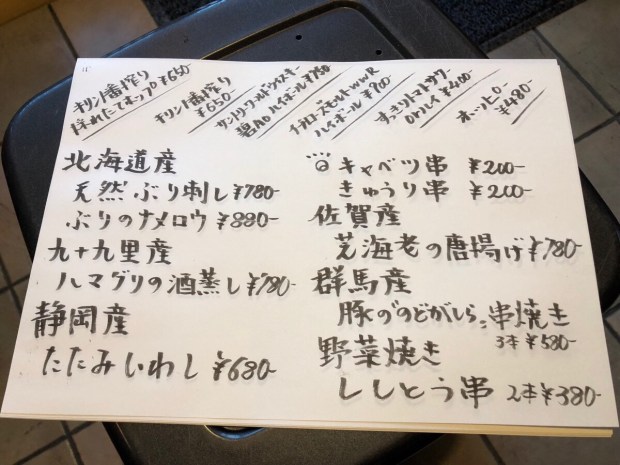 キリン一番搾り
採れたてホップ ¥650-
キリン一番搾り
¥650-
サントリーワールドウイスキー
碧Ao ハイボール ¥750
フォアローズモルトWWR
ハイボール ¥900
すっきりトマトサワー
orハイ ¥400-
ホッピー
¥480-
北海道産
天然ぶり刺し ¥780-
ぶりのナメロウ ¥880-
九十九里産
ハマグリの酒蒸し ¥780-
静岡産
たたみいわし ¥680-
キャベツ串 ¥200-
きゅうり串 ¥200-
佐賀産
芝海老の唐揚げ ¥780-
群馬産
豚ののどがしら串焼き
3本 ¥580-
野菜焼き
ししとう串 2本 ¥380-